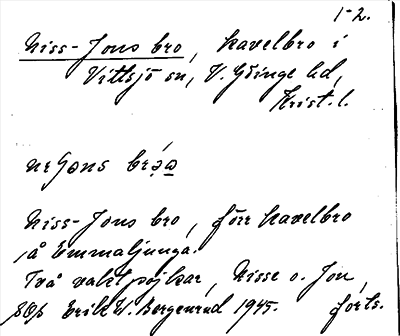 1-2.
Niss-Jons bro, kavelbro i
Vittsjö sn, V. Göinge hd,
Krist. l.
Niss-Jons bro, förr kavelbro
å Emmaljunga.
Två vaktpojkar, Nisse o. Jon,
Erik W. Bergenrud 1945. forts.